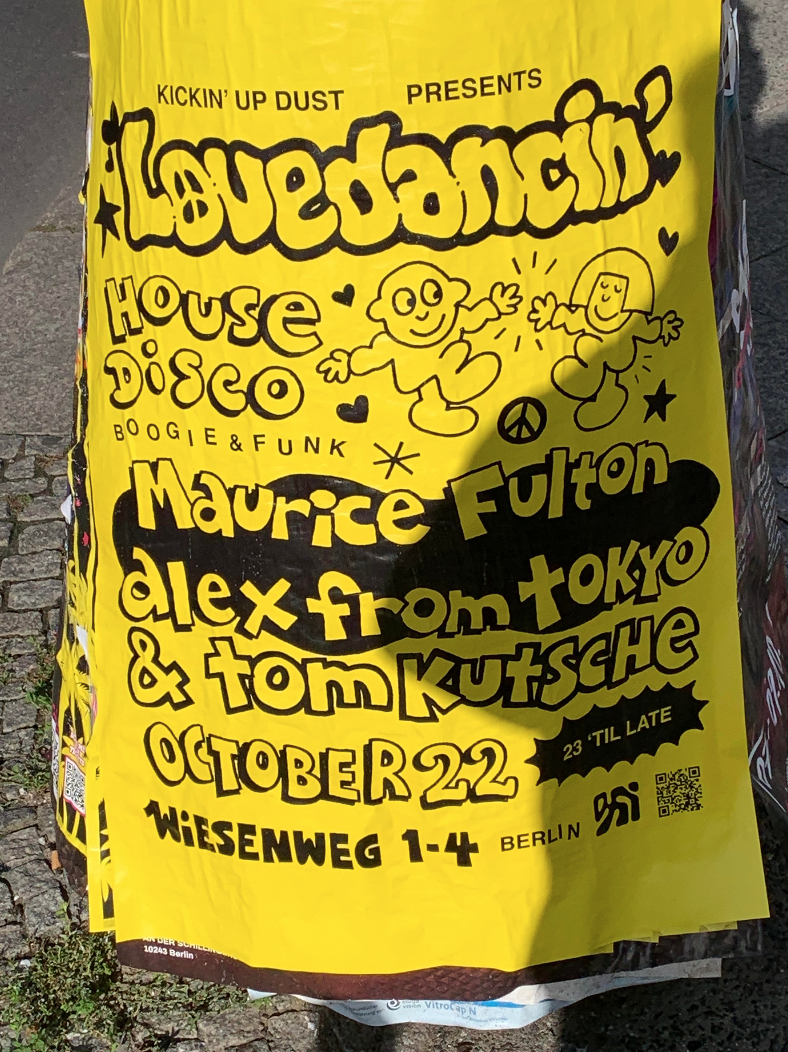 KICKIN' UP DUST PRESENTS
Lovedancin'
HOUSE
DiSCO
BOOGIE & FUNK
Maurice Fulton
alex from TOKYO
& tom KUTSCHE
OCTOBER 22
23 'TIL LATE
WiESENWEG 1-4 BERLIN
10243 Berlin
VitroCap N